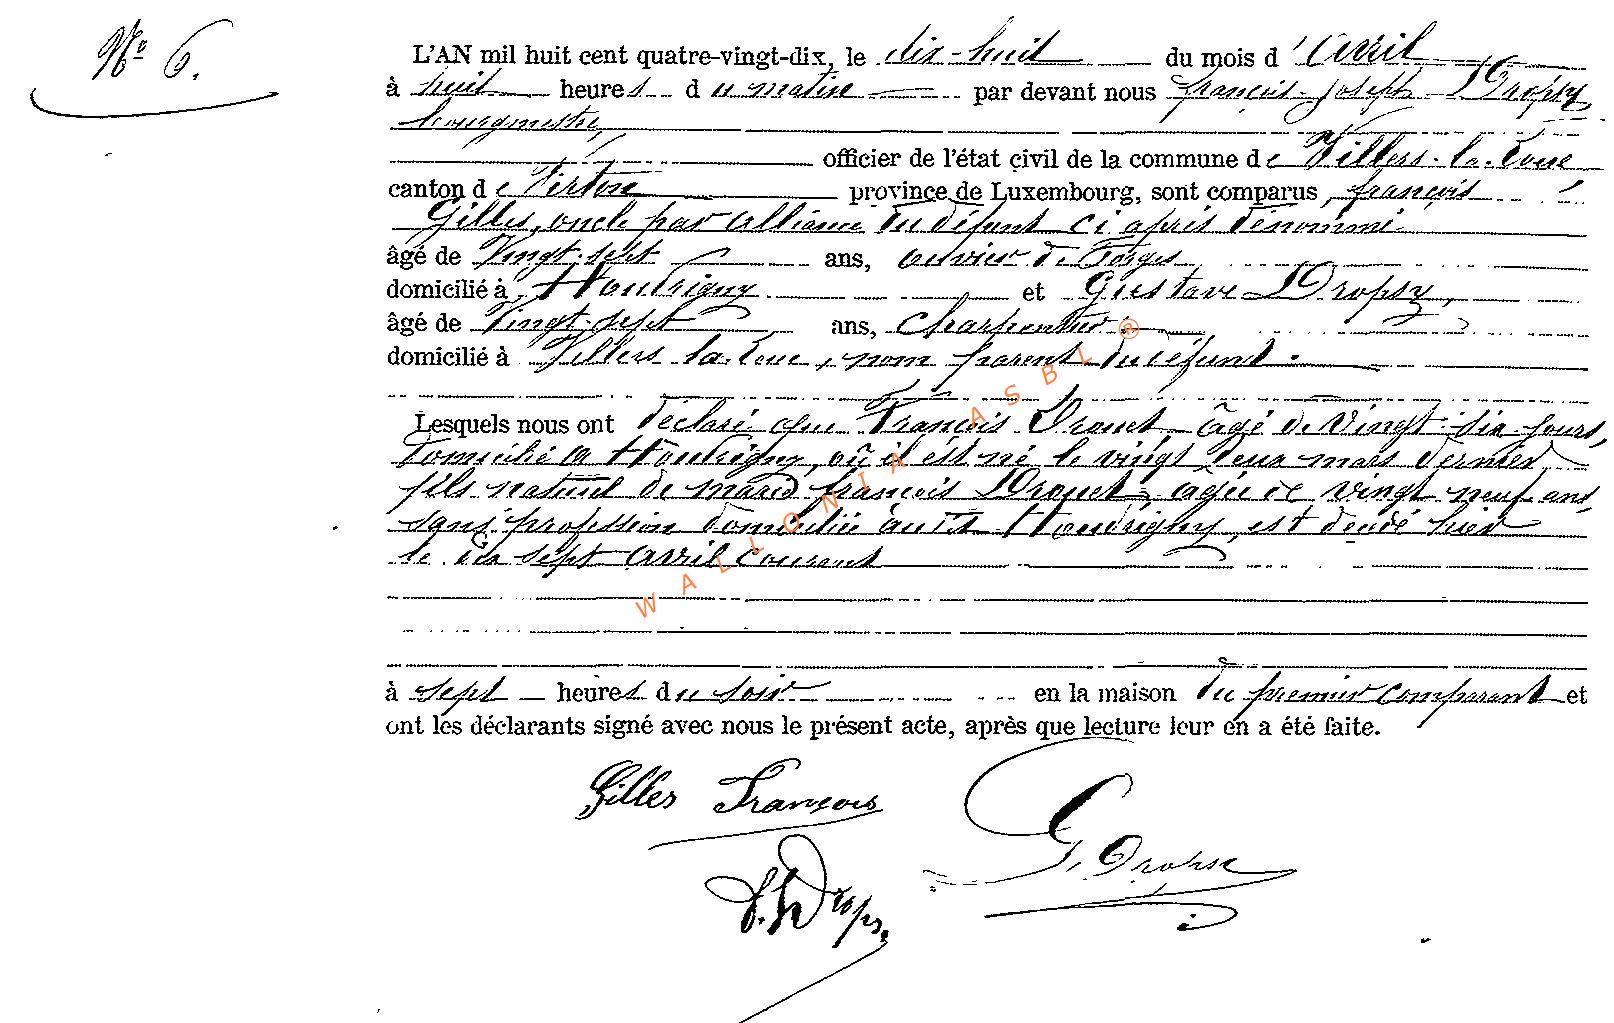 N° 6.
L'AN mil huit cent quatre-vingt-dix, le dix-huit du mois d'avril
à huit heures du matin par devant nous françois-joseph Dropsy
bourgmestre,
officier de l'état civil de la commune de Villers-la-Loue
canton de Virton province de Luxembourg, sont comparus, françois
Gilles, oncle par alliance du défunt ci après dénommé
âgé de Vingt-sept ans, ouvrier de forges
domicilié à Houdrigny et Gustave Dropsy,
âgé de Vingt-sept ans, charpentier
domicilié à Villers-la-Loue, non parent du défunt.
Lesquels nous ont déclaré que François Drouet âgé de vingt-six jours,
domicilié à Houdrigny, où il est né le vingt deux mars dernier
fils naturel de marie françois Drouet, agée de vingt neuf ans,
sans profession domiciliée audit Houdrigny, est décédé hier
le dix sept avril courant
à sept heures du soir en la maison du premier comparant et
ont les déclarants signé avec nous le présent acte, après que lecture leur en a été faite.
Gilles François
G. Dropsy
f. j. Dropsy
WALLONIA ASBL ®